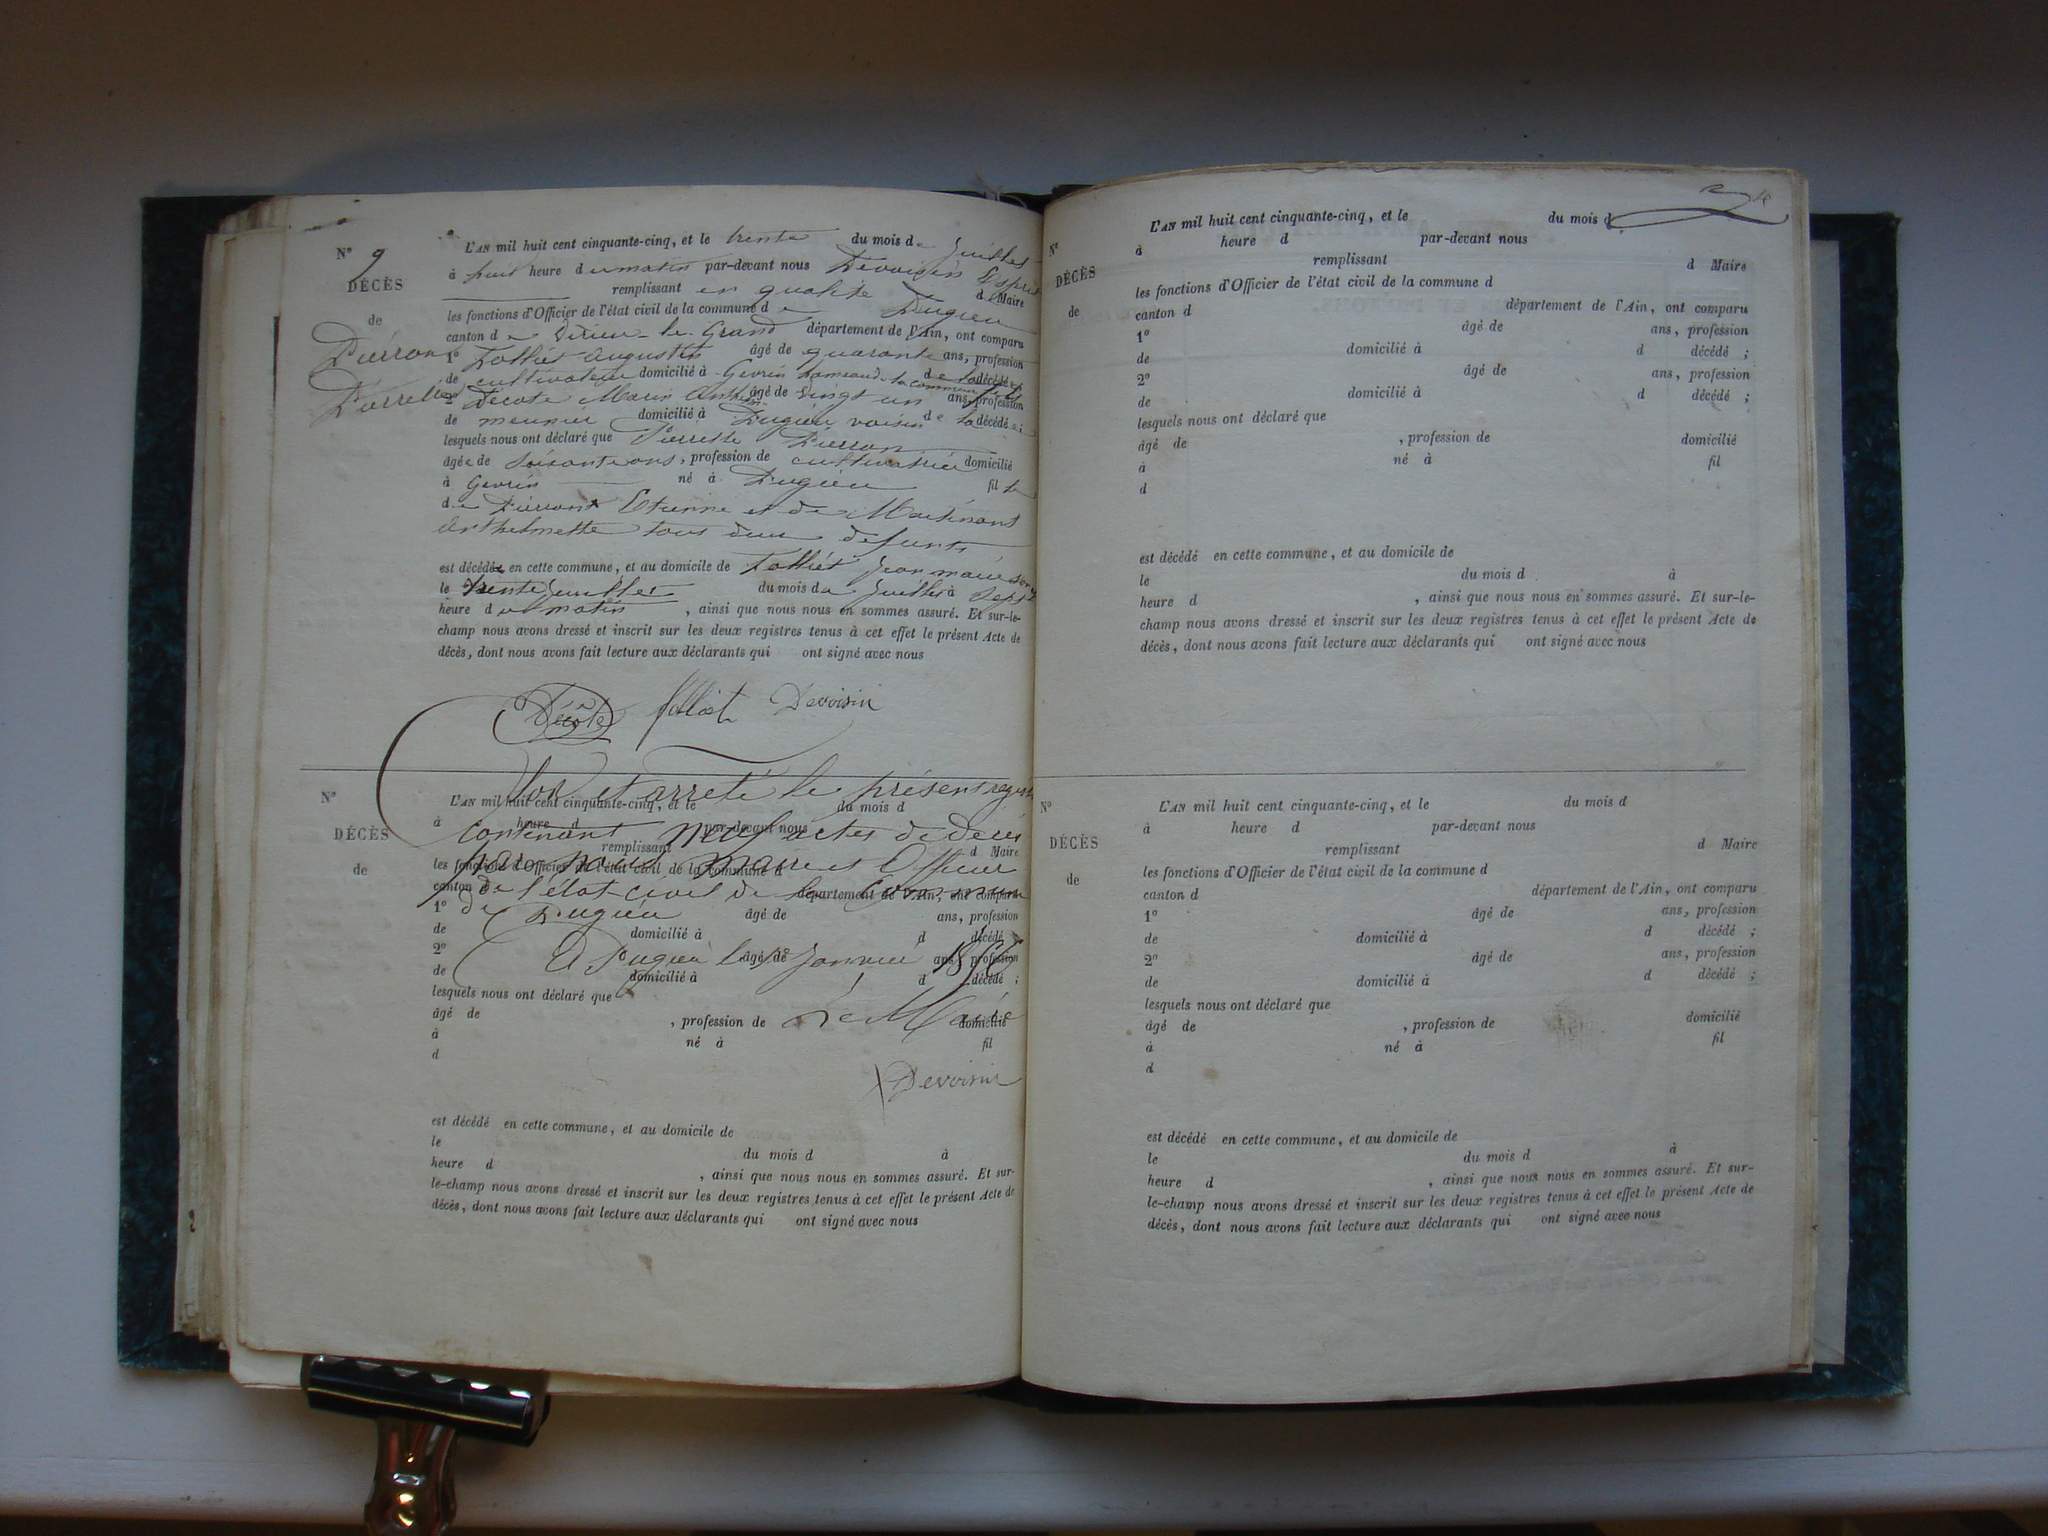 N° 9
DÉCÈS
de
Pierron
Pierrette
L'AN mil huit cent cinquante-cinq, et le trente du mois de Juillet
à huit heure du matin par-devant nous Devoisin Esprit
remplissant en qualité d Maire
les fonctions d'Officier de l'état civil de la commune de Pugieu
canton de Virieu-le-Grand département de l'Ain, ont comparu
1° Folliet Augustin âgé de quarante ans, profession
de cultivateur domicilié à Gevrin hameau de la commune décédé
2° Décote Marin Anthelme âgé de vingt un ans, profession
de meunier domicilié à Pugieu voisin de la décédée ;
lesquels nous ont déclaré que Pierrette Pierron
âgée de soixante ans, profession de cultivatrice domicilié
à Gevrin né à Pugieu fille
de Pierron Etienne et de Martinant
Anthelmette tous deux défunts
est décédée en cette commune, et au domicile de Folliet Jean marie son
le trente juillet du mois de Juillet à sept
heure du matin, ainsi que nous nous en sommes assuré. Et sur-le-
champ nous avons dressé et inscrit sur les deux registres tenus à cet effet le présent Acte de
décès, dont nous avons fait lecture aux déclarants qui ont signé avec nous
Décote folliet Devoisin
Clos et arrêté le présent registre
contenant neuf actes de décès
par nous maire et Officier
de l'état-civil de la Commune
de Pugieu
A Pugieu le 1er Janvier 1856
Le Maire
Devoisin
N°
DÉCÈS
de
L'AN mil huit cent cinquante-cinq, et le du mois d
à heure d par-devant nous
remplissant d Maire
les fonctions d'Officier de l'état civil de la commune d
canton d département de l'Ain, ont comparu
1° âgé de ans, profession
de domicilié à d décédé ;
2° âgé de ans, profession
de domicilié à d décédé ;
lesquels nous ont déclaré que
âgé de , profession de domicilié
à né à fil
d
est décédé en cette commune, et au domicile de
le du mois d à
heure d , ainsi que nous nous en sommes assuré. Et sur-
le-champ nous avons dressé et inscrit sur les deux registres tenus à cet effet le présent Acte de
décès, dont nous avons fait lecture aux déclarants qui ont signé avec nous
N°
DÉCÈS
de
L'AN mil huit cent cinquante-cinq, et le du mois d
à heure d par-devant nous
remplissant d Maire
les fonctions d'Officier de l'état civil de la commune d
canton d département de l'Ain, ont comparu
1° âgé de ans, profession
de domicilié à d décédé ;
2° âgé de ans, profession
de domicilié à d décédé ;
lesquels nous ont déclaré que
âgé de , profession de domicilié
à né à fil
d
est décédé en cette commune, et au domicile de
le du mois d à
heure d , ainsi que nous nous en sommes assuré. Et sur-le-
champ nous avons dressé et inscrit sur les deux registres tenus à cet effet le présent Acte de
décès, dont nous avons fait lecture aux déclarants qui ont signé avec nous
N°
DÉCÈS
de
L'AN mil huit cent cinquante-cinq, et le du mois d
à heure d par-devant nous
remplissant d Maire
les fonctions d'Officier de l'état civil de la commune d
canton d département de l'Ain, ont comparu
1° âgé de ans, profession
de domicilié à d décédé ;
2° âgé de ans, profession
de domicilié à d décédé ;
lesquels nous ont déclaré que
âgé de , profession de domicilié
à né à fil
d
est décédé en cette commune, et au domicile de
le du mois d à
heure d , ainsi que nous nous en sommes assuré. Et sur-
le-champ nous avons dressé et inscrit sur les deux registres tenus à cet effet le présent Acte de
décès, dont nous avons fait lecture aux déclarants qui ont signé avec nous